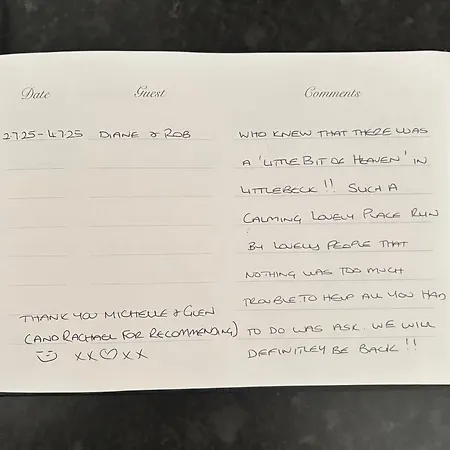 Date Guest Comments
2725-4725 DIANE & ROB
WHO KNEW THAT THERE WAS
A 'LITTLE BIT OF HEAVEN' IN
LITTLEBECK!! SUCH A
CALMING LOVELY PLACE RUN
BY LOVELY PEOPLE THAT
NOTHING WAS TOO MUCH
TROUBLE TO HELP ALL YOU HAD
TO DO WAS ASK. WE WILL
DEFINITLEY BE BACK!!
THANK YOU MICHELLE & GLEN
(AND RACHAEL FOR RECOMMENDING)
☺ XX♡XX